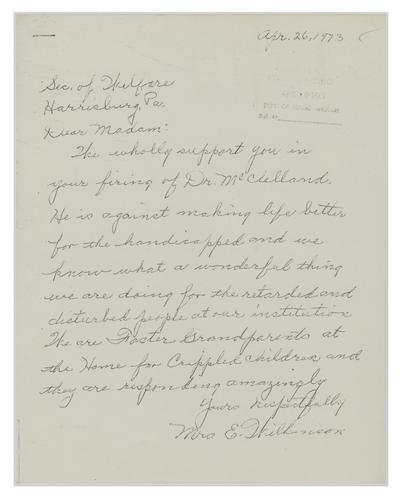 Apr. 26, 1973
Sec. of Welfare
Harrisburg, Pa.
Dear Madam:
The wholly support you in
your firing of Dr. McClelland.
He is against making life better
for the handicapped and we
know what a wonderful thing
we are doing for the retarded and
disturbed people at our institution
We are Foster Grandparents at
the Home for Crippled children and
they are responding amazingly
Yours respectfully
Mrs E. Wilkinson